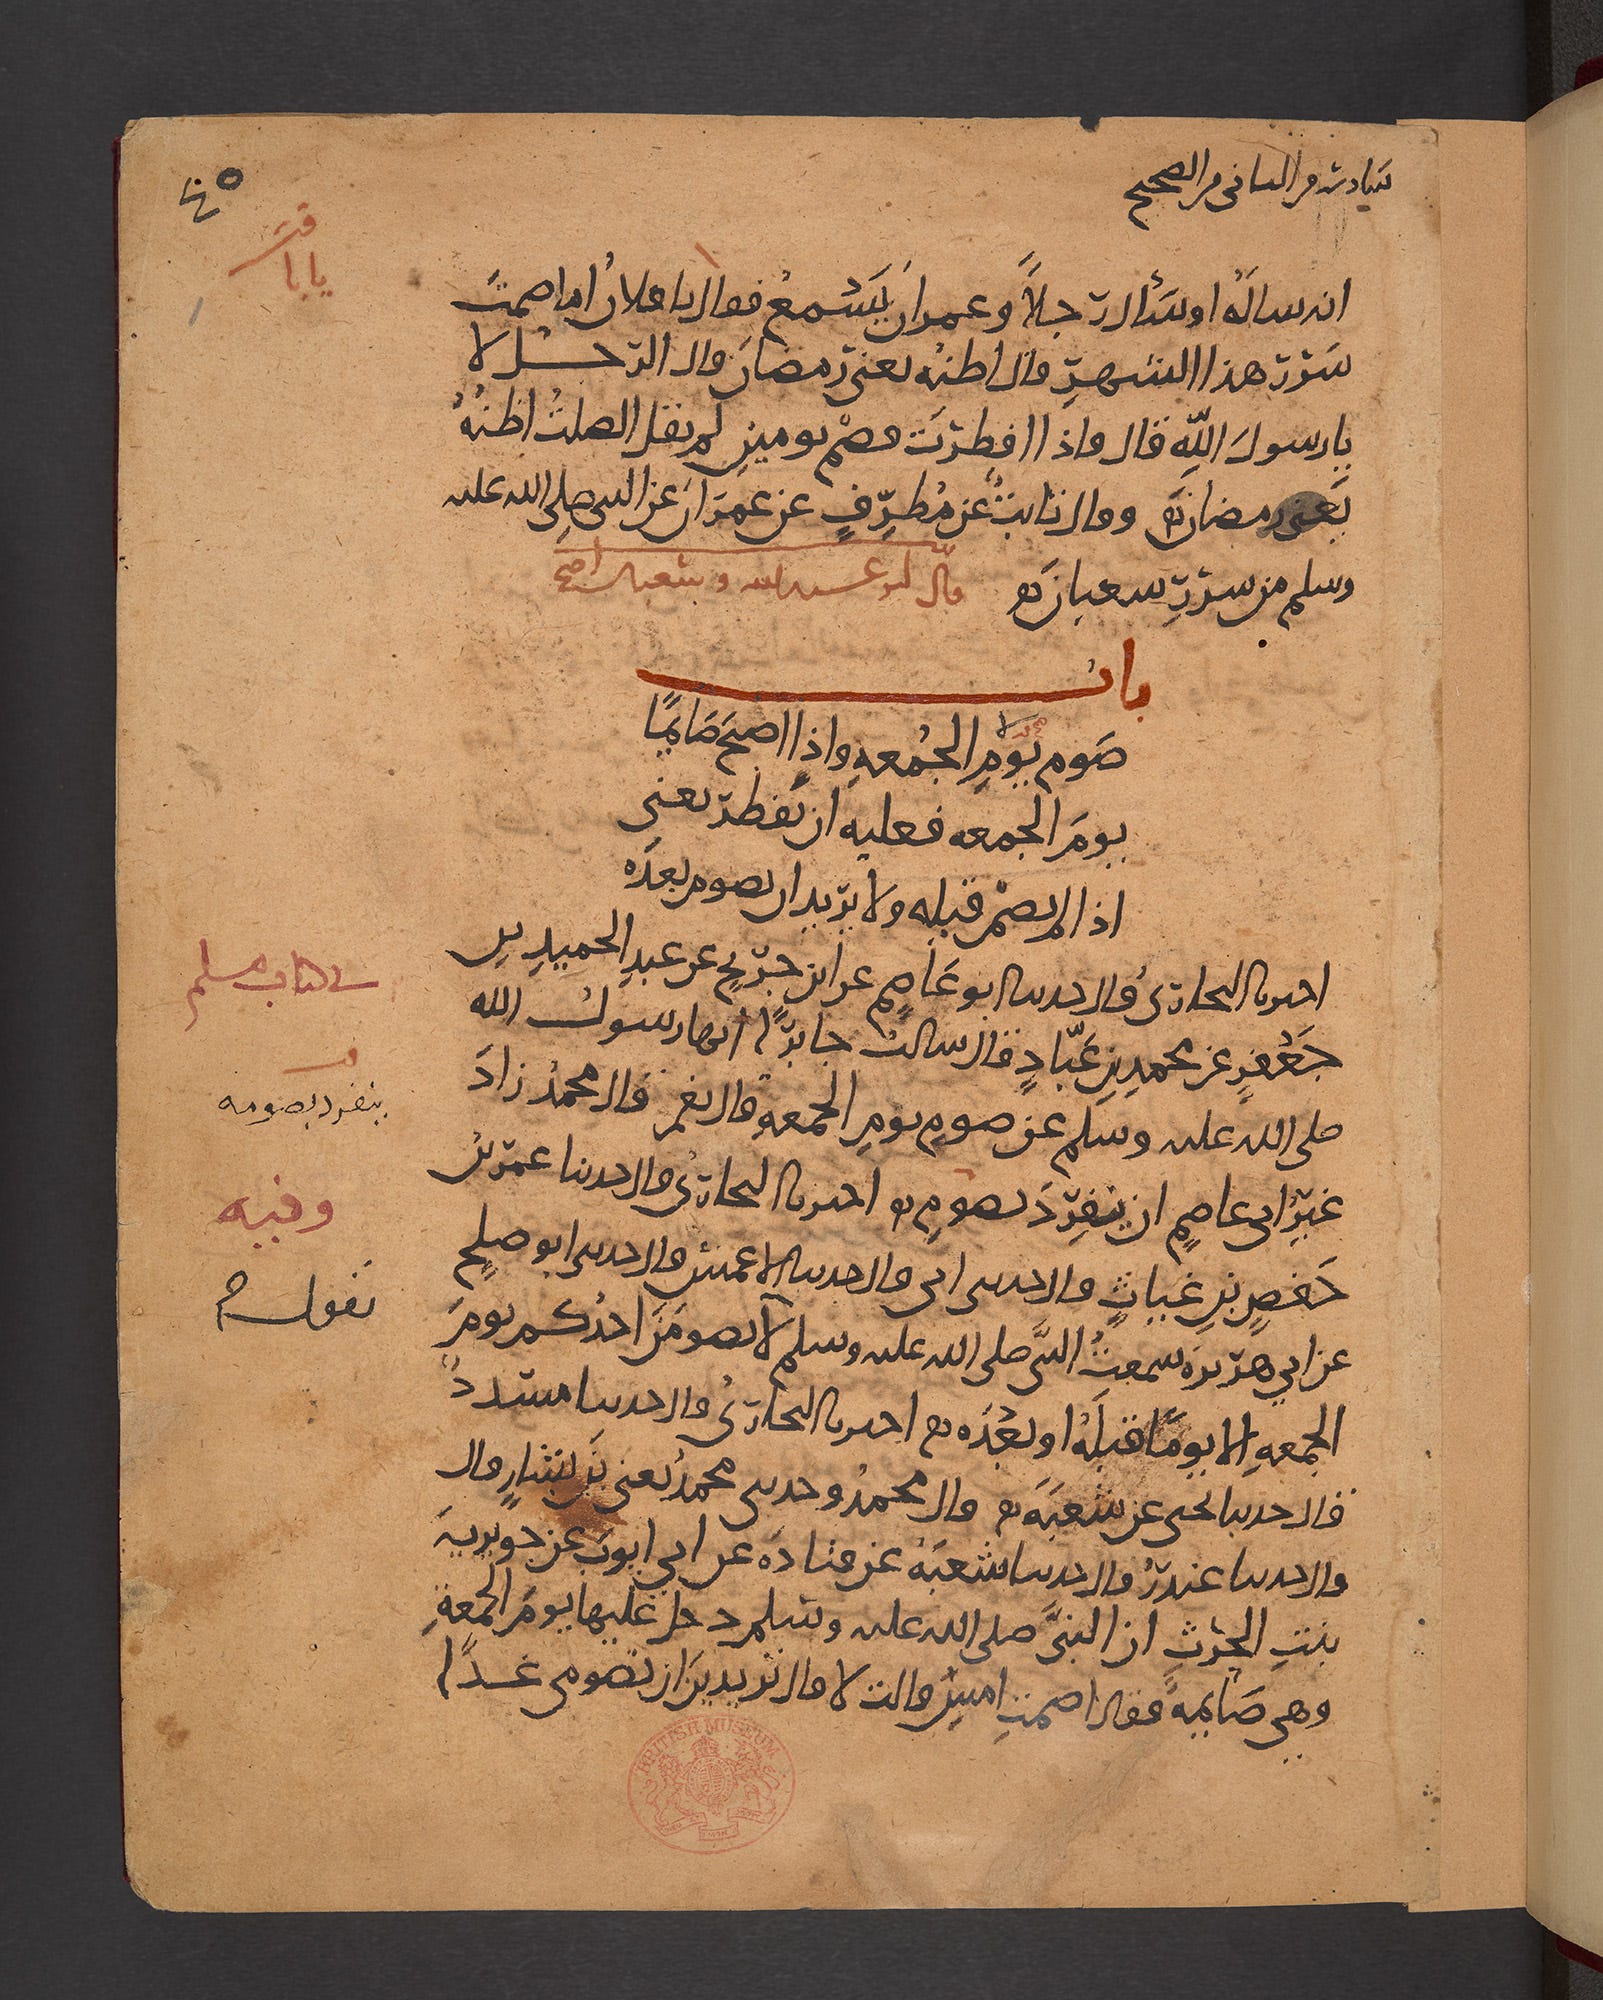 سادسة من الثاني من الصحيح
انه ساله او سَأل رجلاً وعمرانُ يَسْمعُ فقال يا فلانُ اما صمتَ
سَرَرَ هذا الشهرِ قال اظنُّه يعنى رمضانَ قال الرجل لا
يا رسولَ اللّهِ قال فاذا افطرْتَ فصُمْ يومينِ لم يقل الصلتُ اظنُّهُ
يَعنى رمضانَ وقال ثابتٌ عن مُطرِّفٍ عن عمرَانَ عن النبى صلى الله عليه
وسلم من سَرَرِ شعبانَ
قال ابو عبد الله وشعبان اصح
باب
صَوم يومِ الجُمعةِ واذا اصبحَ صَايمًا
يومَ الجمعه فعليه ان يُفطر يعنى
اذا لم يصُمْ قبله ولا يريد ان يصوم بعدَه
اخبرنا البخارىُّ قال حدثنا ابو عَاصِمٍ عن ابن جُرَيجٍ عن عبدِ الحميدِ بن
جَعْفرٍ عن محمدِ بنِ عَبّادٍ قال سالتُ جابرًا انهى رسول الله
صلى الله عليه وسلم عن صومِ يومِ الجمعةِ قال نعم قال محمدٌ زادَ
غيرُ ابى عاصمٍ ان ينفرِدَ بصومٍ اخبرنا البخارىُّ قال حدثنا عمرُ بنُ
حَفصِ بنِ غياثٍ قال حدثنى ابى قال حدثنا الاعمش قال حدثنى ابو صلحٍ
عن ابي هريره سمعتُ النبىَّ صلى الله عليه وسلم لا يصومَنَّ احدُكم يومَ
الجمعةِ الا يومًا قبلَهُ او بعْدَه اخبرنا البخارىُّ قال حدثنا مسددٌ
قال حدثنا يحيى عن شعبَةَ قال محمدٌ وحدثنى محمدٌ يعنى بنَ بشارٍ قال
قال حدثنا غندرٌ قال حدثنا شعبَةُ عن قتادَه عن ابي ايوبَ عن جويريةَ
بنتِ الحرثِ ان النبىَّ صلى الله عليه وسَلم دخل عليها يومَ الجمعةِ
وهى صَايمهٌ فقال اصمتِ امسِ قالت لا قال تريدينَ ان تصومى غدًا
فى كتاب مسلم
ينفرد بصومه
وفيه
يقول